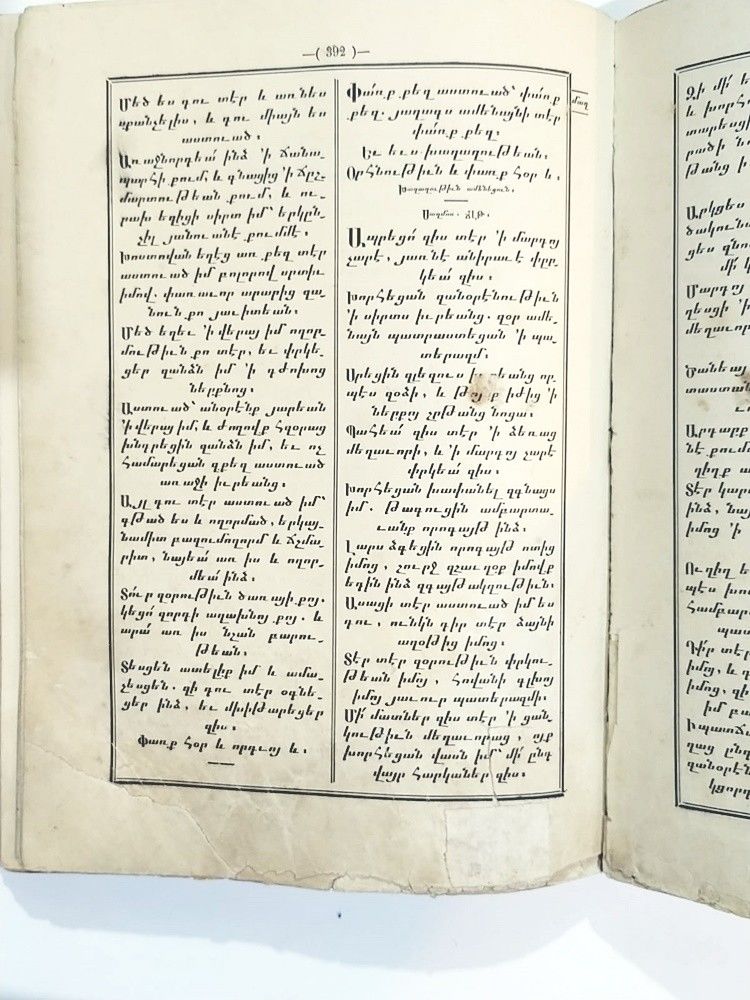 —( 392 )—
Մեծ ես դու տէր և առնես
սքանչելիս, և դու միայն ես
աստուած։
Առաջնորդեա՛ ինձ ՚ի ճանա-
պարհի քում, և գնացից ՚ի ճըշ-
մարտութեան քում, և ու-
րախ եղիցի սիրտ իմ՝ երկըն-
չիլ յանուանէ քումմէ։
Խոստովան եղէց առ քեզ տէր
աստուած իմ բոլորով սրտիւ
իմով. փառաւոր արարից զա-
նուն քո յաւիտեան։
Մեծ եղեւ ՚ի վերայ իմ ողոր-
մութիւն քո տէր, եւ փրկե-
ցեր զանձն իմ ՚ի դժոխոց
ներքնոց։
Աստուած՝ անօրէնք յարեան
՚ի վերայ իմ, և ժողովք հզօրաց
խնդրեցին զանձն իմ, եւ ոչ
համարեցան զքեզ աստուած
առաջի իւրեանց։
Այլ դու տէր աստուած իմ՝
գթած ես և ողորմած, երկայ-
նամիտ բազումողորմ և ճշմա-
րիտ, նայեա՛ առ իս և ողոր-
մեա՛ ինձ։
Տո՛ւր զօրութիւն ծառայի քոյ.
կեցո՛ զորդի աղախնոյ քոյ. և
արա՛ առ իս նշան բարու-
թեան։
Տեսցեն ատելիք իմ և ամա-
չեսցեն. զի դու տէր օգնե-
ցեր ինձ, եւ մխիթարեցեր
զիս։
Փառք Հօր և որդւոյ և.
Փա՛ռք քեզ աստուած՝ փա՛ռք
քեզ. յաղագս ամենայնի տէր
փա՛ռք քեզ։
Եւ եւս խաղաղութեան։
Օրհնութիւն և փառք Հօր և.
Խաղաղութիւն ամենեցուն։
Սաղմոս. ՃԼԹ.
Ապրեցո՛ զիս տէր ՚ի մարդոյ
չարէ, յառնէ անիրաւէ փըր-
կեա՛ զիս։
Խորհեցան զանօրէնութիւն
՚ի սիրտս իւրեանց. զօր ամե-
նայն պատրաստեցան ՚ի պա-
տերազմ։
Սրեցին զլեզուս իւրեանց որ-
պէս զօձի, և թոյնք իժից ՚ի
ներքոյ շրթանց նոցա։
Պահեա՛ զիս տէր ՚ի ձեռաց
մեղաւորի, և ՚ի մարդոյ չարէ
փրկեա՛ զիս։
Խորհեցան խափանել զգնացս
իմ. թագուցին ամբարտա-
ւանք որոգայթ ինձ։
Լարս ձգեցին որոգայթ ոտից
իմոց, շուրջ զշաւղօք իմովք
եդին ինձ զգայթակղութիւն։
Ասացի տէր աստուած իմ ես
դու, ունկն դիր տէր ձայնի
աղօթից իմոց։
Տէր տէր զօրութիւն փրկու-
թեան իմոյ, հովանի գլխոյ
իմոյ յաւուր պատերազմի։
Մի՛ մատներ զիս տէր ՚ի ցան-
կութիւն մեղաւորաց, ոյք
խորհեցան վասն իմ՝ մի՛ ընդ
վայր հարկաներ զիս։
մաղ